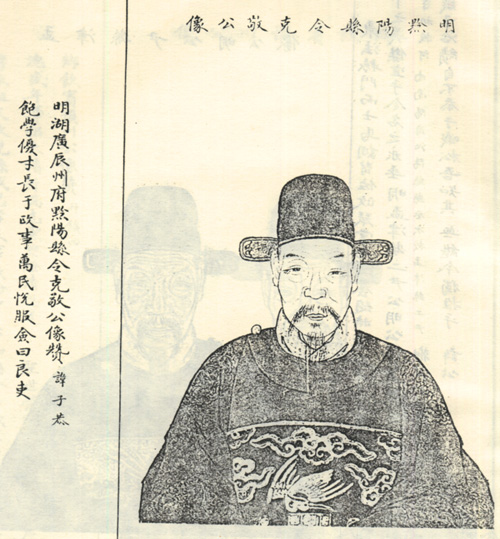 明黔陽縣令克敬公像
明湖廣辰州府黔陽縣令克敬公像贊 諱于恭
飽學優才長于政事萬民悅服僉曰良吏